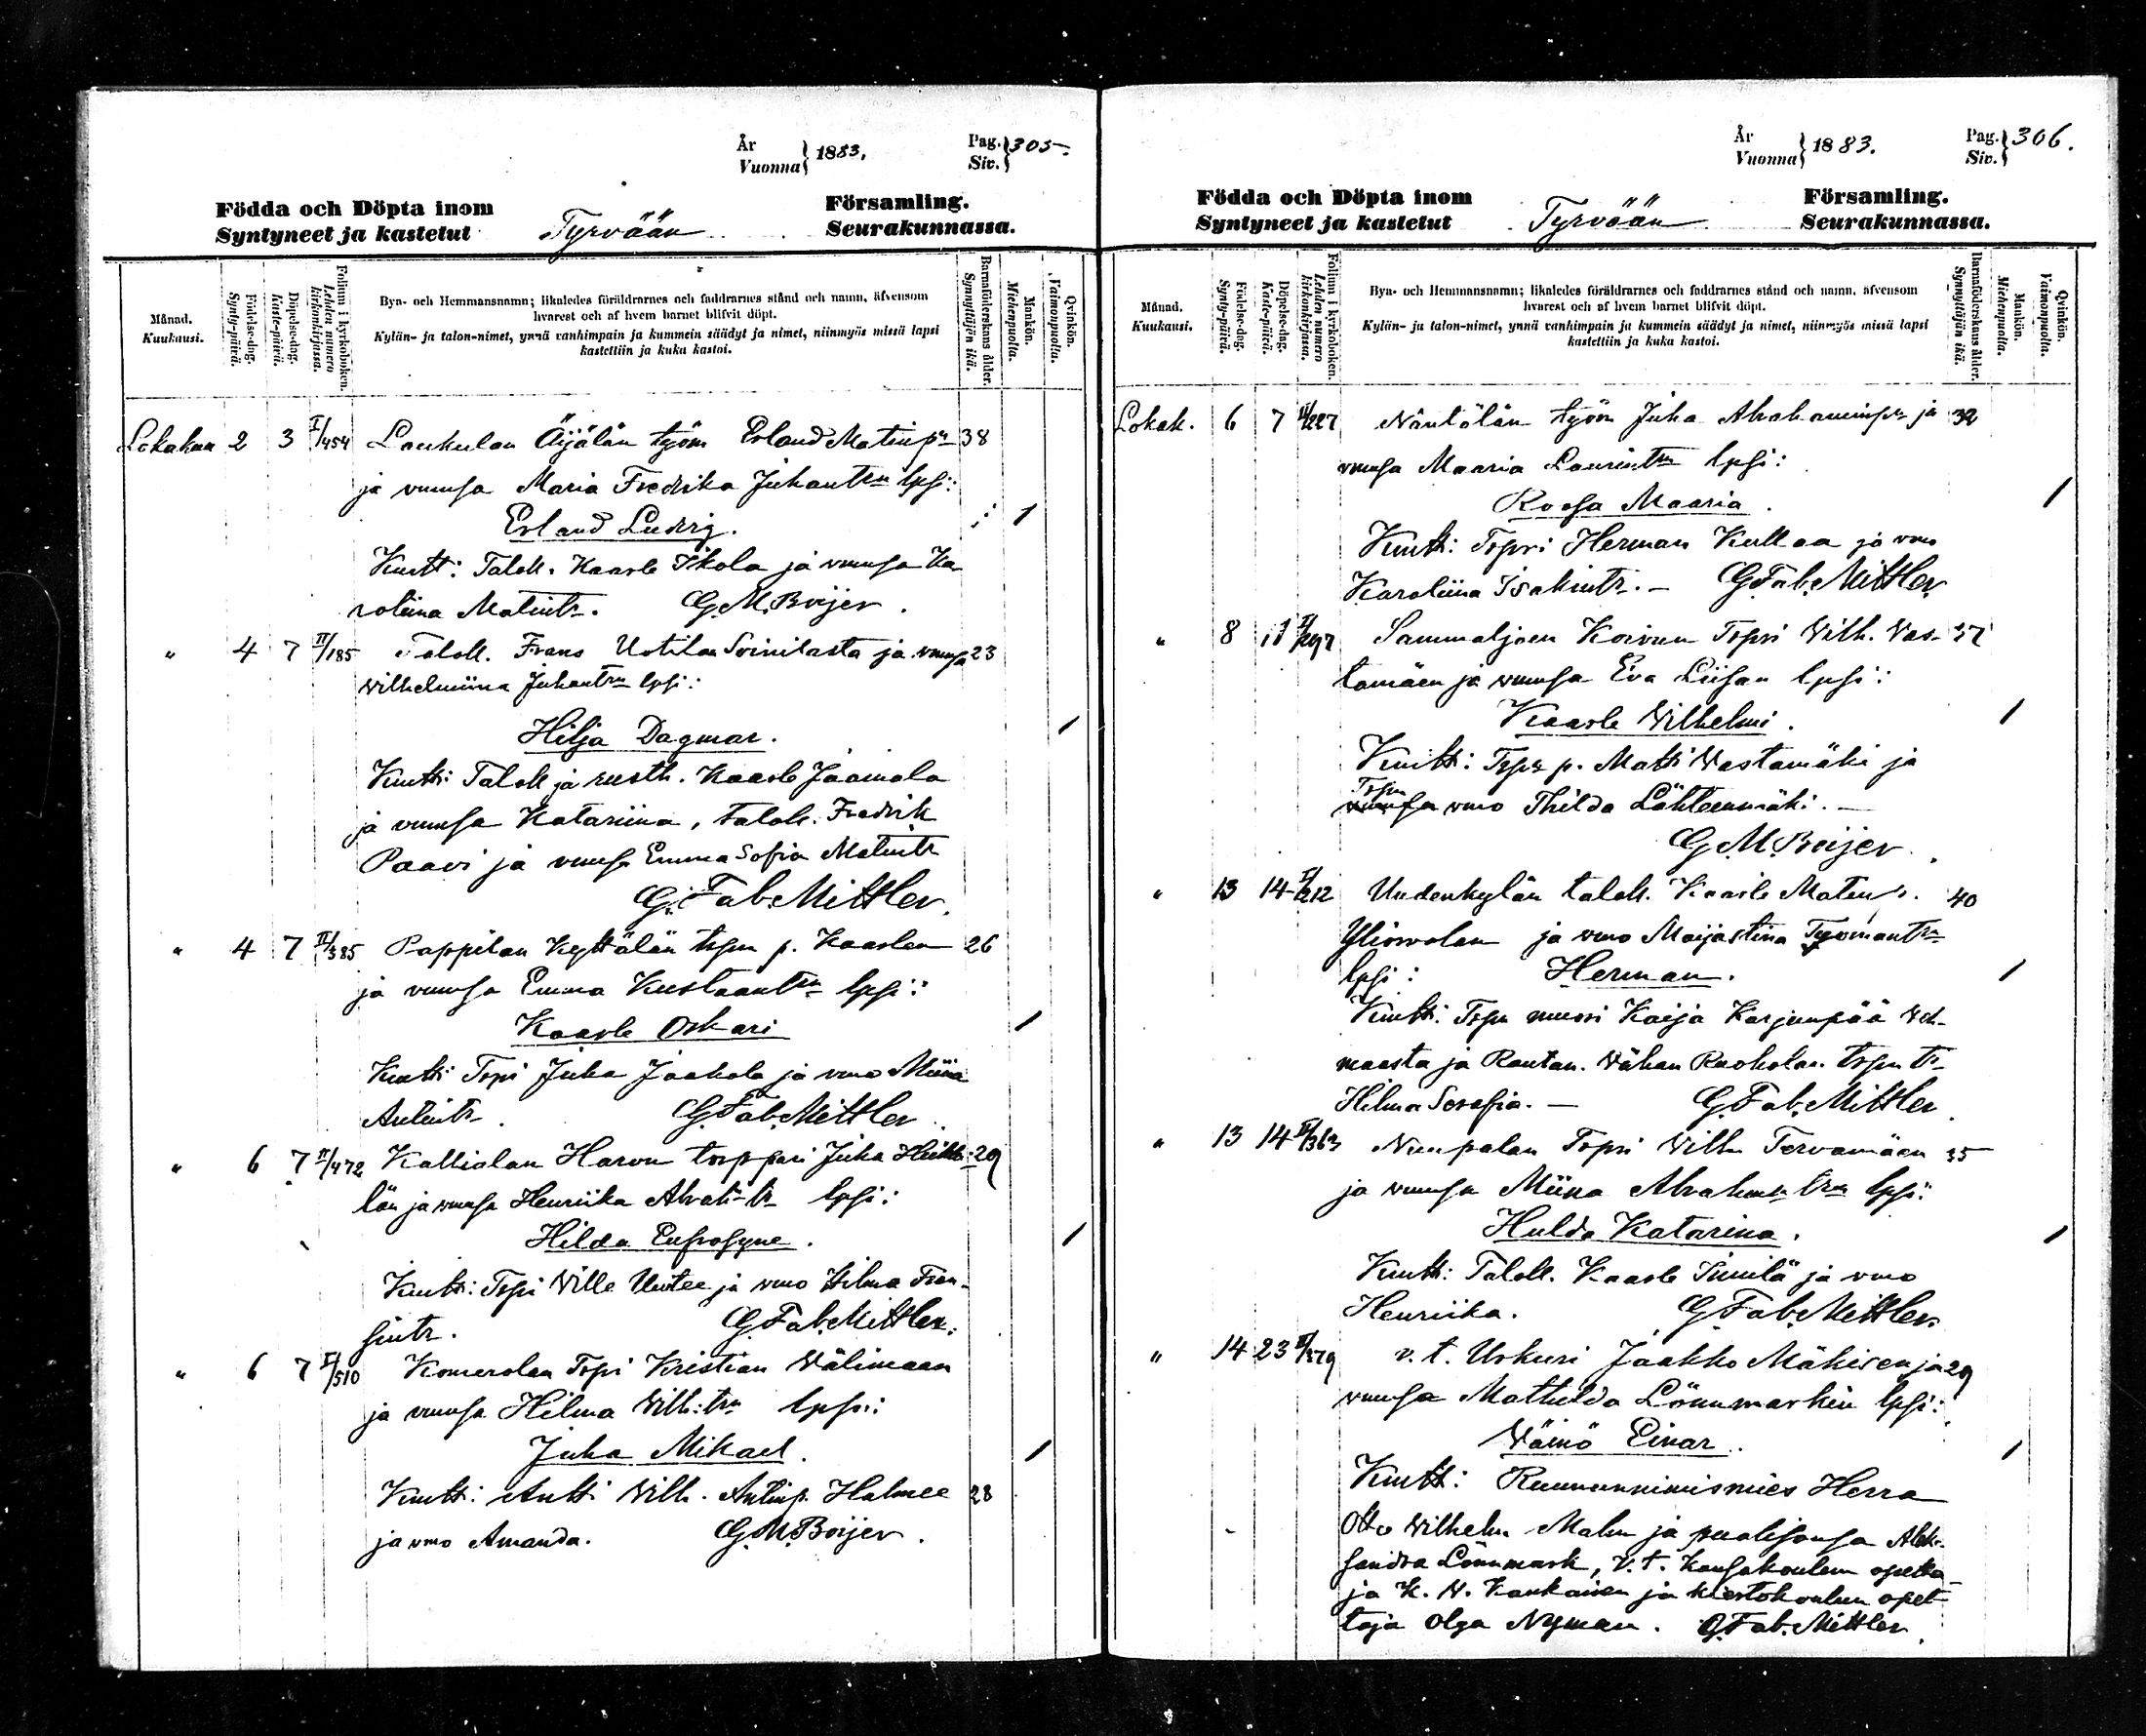 År
Vuonna } 1883.
Pag.
Siv. } 305.
Födda och Döpta inom
Syntyneet ja kastetut
Tyrvään
Församling.
Seurakunnassa.
Månad.
Kuukausi.
Födelse-dag.
Synty-päivä.
Döpelse-dag.
Kaste-päivä.
Folium i kyrkoboken.
Lehden numero kirkonkirjassa.
Byn- och Hemmansnamn; likaledes föräldrarnes och faddrarnes stånd och namn, äfvensom
hvarest och af hvem barnet blifvit döpt.
Kylän- ja talon-nimet, ynnä vanhimpain ja kummein säädyt ja nimet, niinmyös missä lapsi
kastettiin ja kuka kastoi.
Barnaföderskans ålder.
Synnyttäjän ikä.
Mankön.
Miehenpuolta.
Qvinkön.
Vaimonpuolta.
Lokakuu 2 3 I/454 Laukulan Äijälän työm Erland Matinpn 38
ja vmnsa Maria Fredrika Juhantrn lpsi:
Erland Ludvig. 1
Kmtt: Talok. Kaarle Ikola ja vmnsa Ka
roliina Matintr. G.M. Boijer.
" 4 7 II/185 Talok. Frans Uotilan Soinilasta ja vmnsa 23
Wilhelmiina Juhantrn lpsi:
Hilja Dagmar. 1
Kmtt: Talok ja rusth. Kaarle Jaamala
ja vmnsa Katariina, talok. Fredrik
Paavi ja vmnsa Emma Sofia Matintr
G. Fab. Mittler.
" 4 7 II/385 Pappilan Kyttälän tspn p. Kaarlen 26
ja vmnsa Emma Kustaantrn lpsi:
Kaarle Oskari 1
Kmtt: Tspi Juha Jaakola ja vmo Miina
Antintr. G. Fab. Mittler.
" 6 7 II/472 Kalliolan Harun torppari Juha Heikki- 29
län ja vmnsa Henriika Abrah-tr lpsi:
Hilda Eufrosyne. 1
Kmtt: Tspi Wille Uutee ja vmo Hilma Fran-
sintr. G. Fab. Mittler.
" 6 7 II/510 Komerolan Tspi Kristian Välimaan
ja vmnsa Hilma Wilh:trn lpsi:
Juha Mikael. 1
Kmtt: Antti Wilh. Antinp. Halmee 28
ja vmo Amanda. G.M. Boijer.
År
Vuonna } 1883.
Pag.
Siv. } 306.
Födda och Döpta inom
Syntyneet ja kastetut
Tyrvään
Församling.
Seurakunnassa.
Månad.
Kuukausi.
Födelse-dag.
Synty-päivä.
Döpelse-dag.
Kaste-päivä.
Folium i kyrkoboken.
Lehden numero kirkonkirjassa.
Byn- och Hemmansnamn; likaledes föräldrarnes och faddrarnes stånd och namn, äfvensom
hvarest och af hvem barnet blifvit döpt.
Kylän- ja talon-nimet, ynnä vanhimpain ja kummein säädyt ja nimet, niinmyös missä lapsi
kastettiin ja kuka kastoi.
Barnaföderskans ålder.
Synnyttäjän ikä.
Mankön.
Miehenpuolta.
Qvinkön.
Vaimonpuolta.
Lokak. 6 7 II/227 Näntölän työm Juha Abrahaminpn ja 32
vmnsa Maaria Laurintrn lpsi:
Roosa Maaria. 1
Kmtt: Tspri Herman Kullaa ja vmo
Karoliina Isakintr. - G. Fab. Mittler
" 8 11 II/297 Sammaljoen Koivun Tspri Wilh. Vas- 37
tamäen ja vmnsa Eva Liisan lpsi:
Kaarle Wilhelmi. 1
Kmtt: Tspr p. Matti Wastamäki ja
Tspn vmo Thilda Lähteenmäki. -
G.M. Boijer.
" 13 14 I/212 Uudenkylän talok. Kaarle Matinp. 40
Yliorolan ja vmo Maijastina Tyomantrn
lpsi: Herman. 1
Kmtt: Tspn muori Kaija Karjunpää Veh-
maasta ja Rautan. Vähän Ruoholan tspn tr
Hilma Serafia. - G. Fab. Mittler
" 13 14 II/363 Nuupalan Tspri Wilh Tervamäen 35
ja vmnsa Miina Abrahamtrn lpsi:
Hulda Katarina. 1
Kmtt: Talok. Kaarle Simila ja vmo
Henriika. G. Fab. Mittler.
" 14 23 II/579 v.t. Urkuri Jaakko Mäkisen ja 29
vmnsa Mathilda Lönnmarkin lpsi:
Wäinö Einar. 1
Kmtt: Ruununnimismies Herra
Otto Wilhelm Malm ja puolisonsa Alek-
sandra Lönnmark, V.t. Kansakoulun opetta-
ja K. W. Kaukainen ja kiertokoulun opet-
taja Olga Nyman. G. Fab. Mittler.